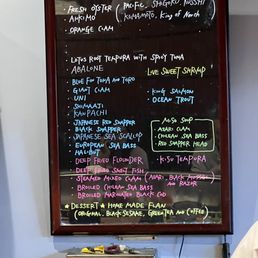 • FRESH OYSTER (PACIFIC, SHIGOKU, KUSSHI
• ANKIMO KUMAMOTO, KING OF NORTH
• ORANGE CLAM
LOTUS ROOT TEMPURA WITH SPICY TUNA
ABALONE LIVE SWEET SHRIMP
• BLUE FIN TUNA AND TORO
• GIANT CLAM • KING SALMON
• UNI • OCEAN TROUT
• SHIMAAJI
• KANPACHI MISO SOUP
• JAPANESE RED SNAPPER • ASARI CLAM
• BLACK SNAPPER • CHILEAN SEA BASS
• JAPANESE SEA SCALLOP • RED SNAPPER HEAD
• EUROPEAN SEA BASS
• HALIBUT
• DEEP FRIED FLOUNDER • KISU TEMPURA
• DEEP FRIED SMELT FISH
• STEAMED MIXED CLAM (ASARI, BLACK MUSSEL
• BROILED CHILEAN SEA BASS AND RAZOR
• BROILED MARINATED BLACK COD
★ DESSERT ★ HOME MADE FLAN
(ORIGINAL, BLACK SESAME, GREEN TEA AND COFFEE)